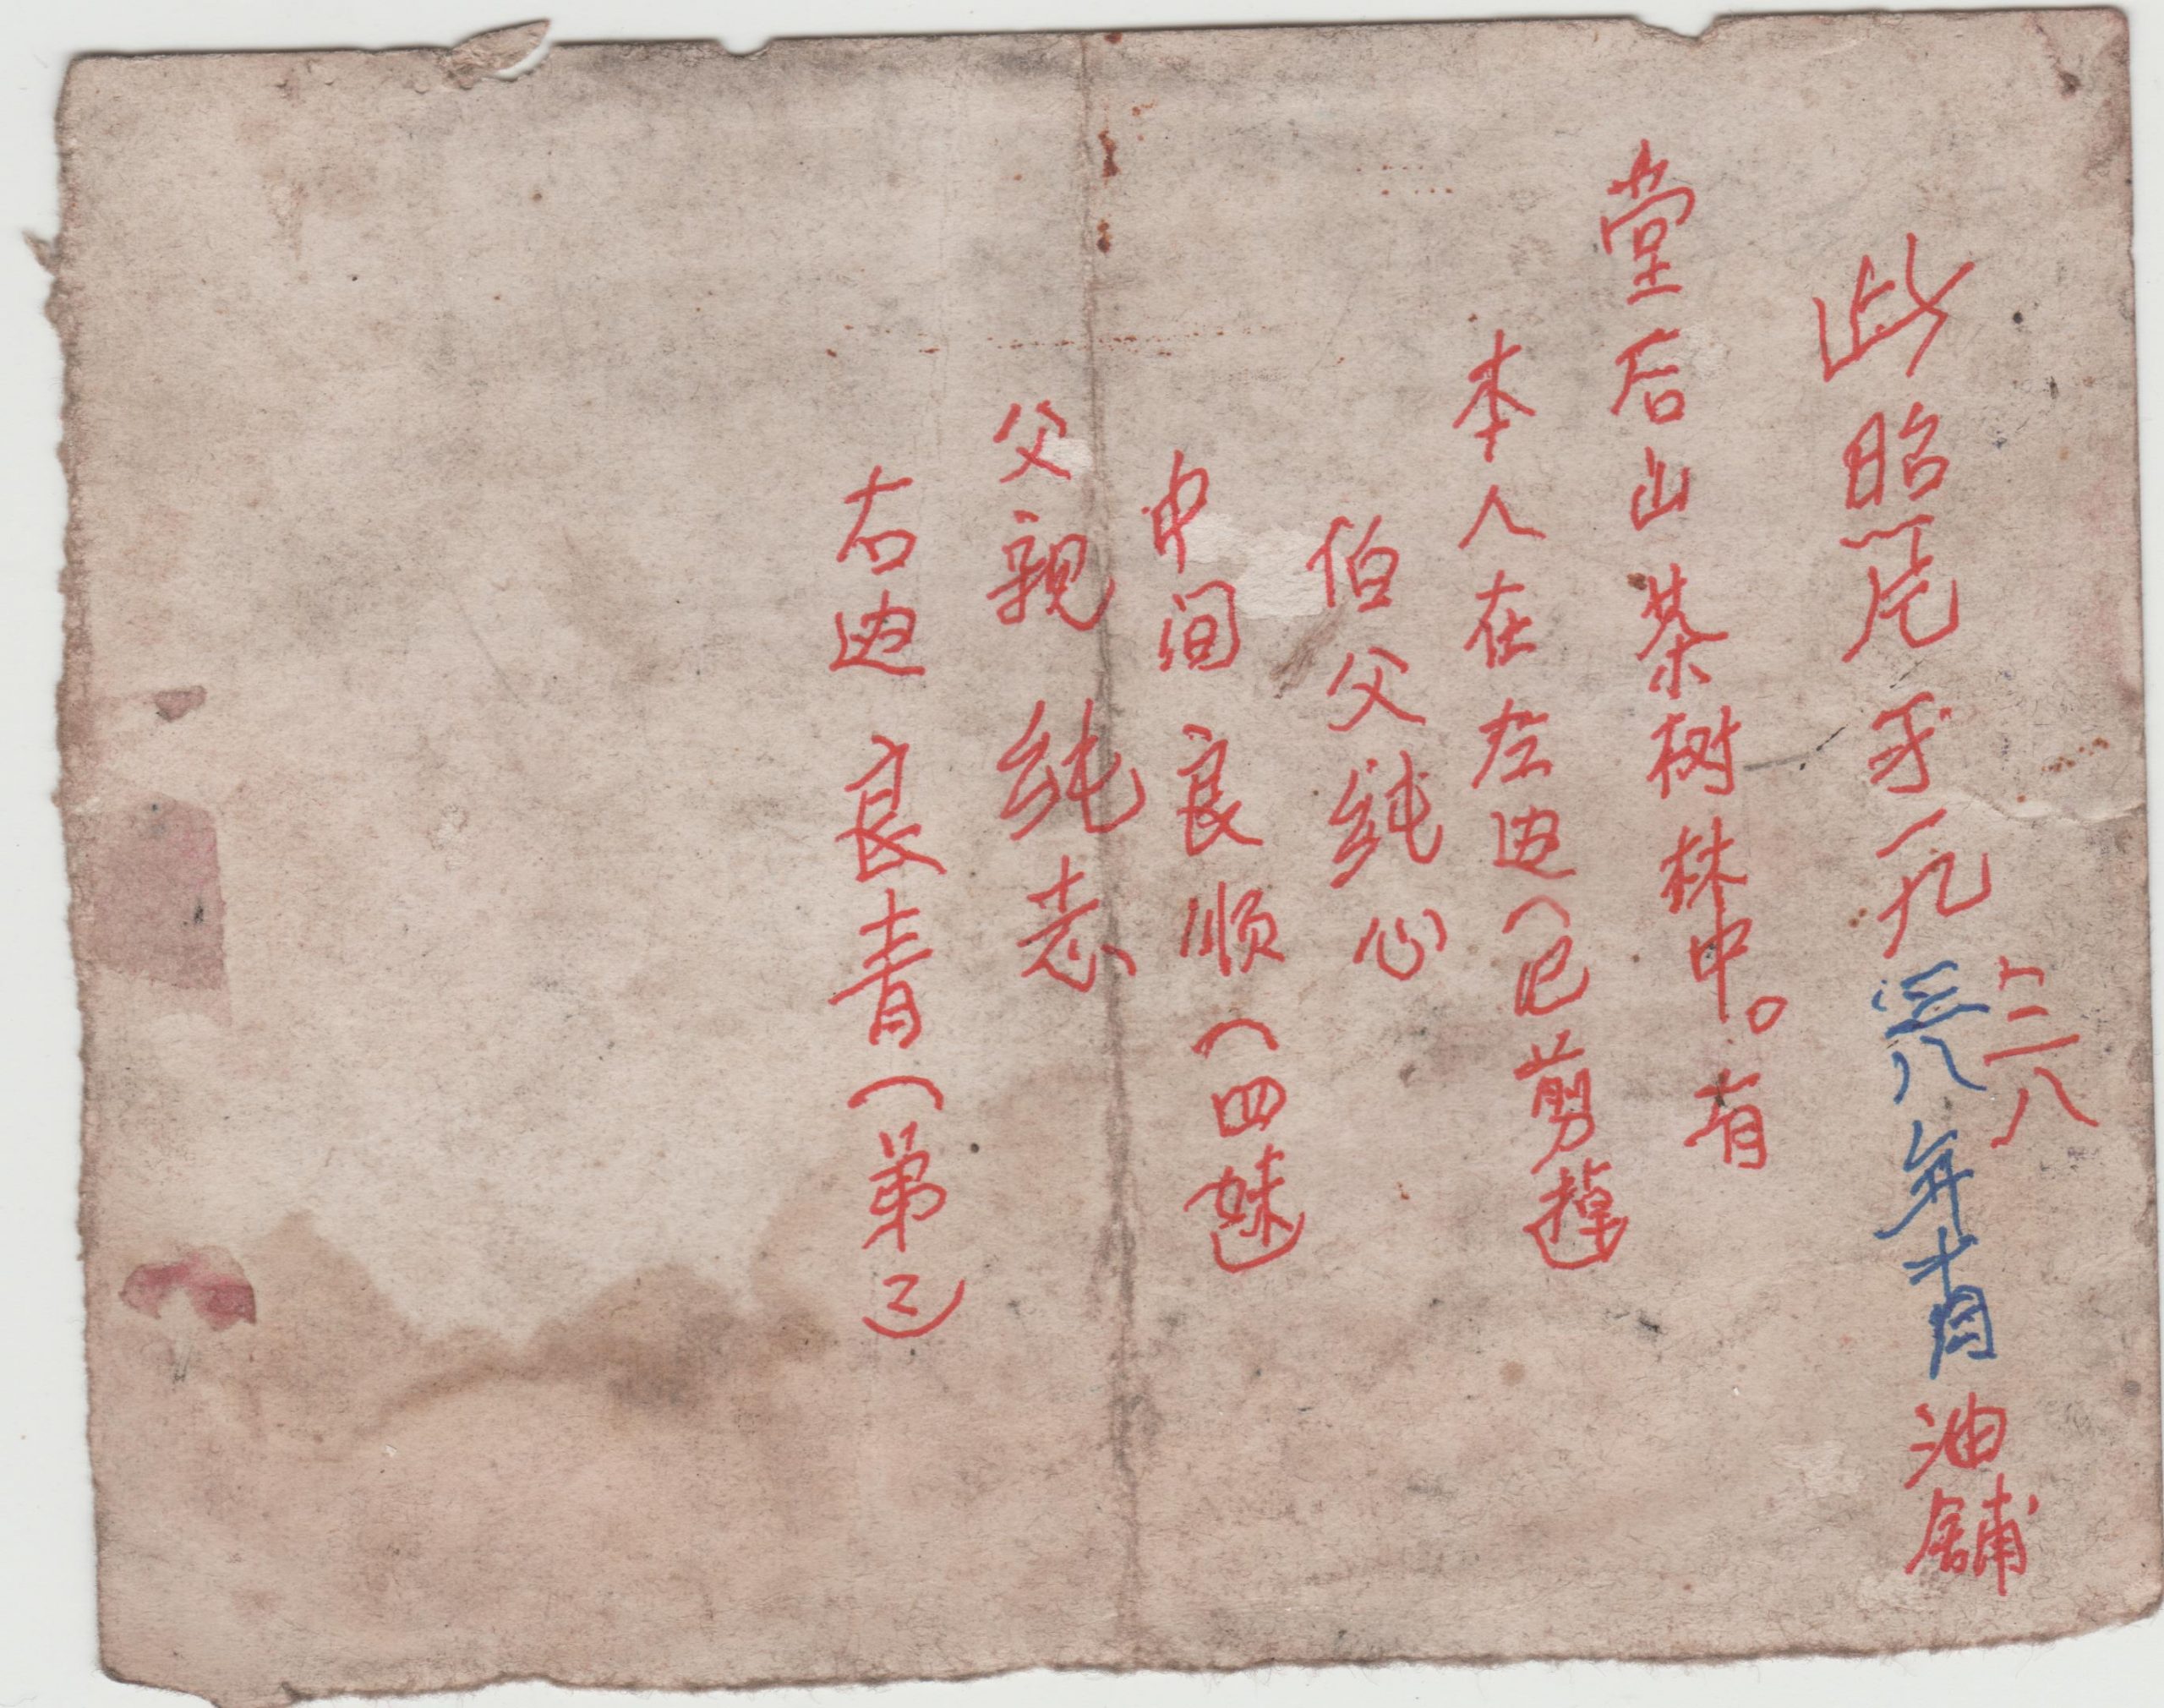 三八
此照片于一九三八年十月油舖
堂后山茶树林中。有
本人在左边（已剪掉）
伯父纯心
中间 良顺（四妹）
父親 纯志
右边 良青（弟々）